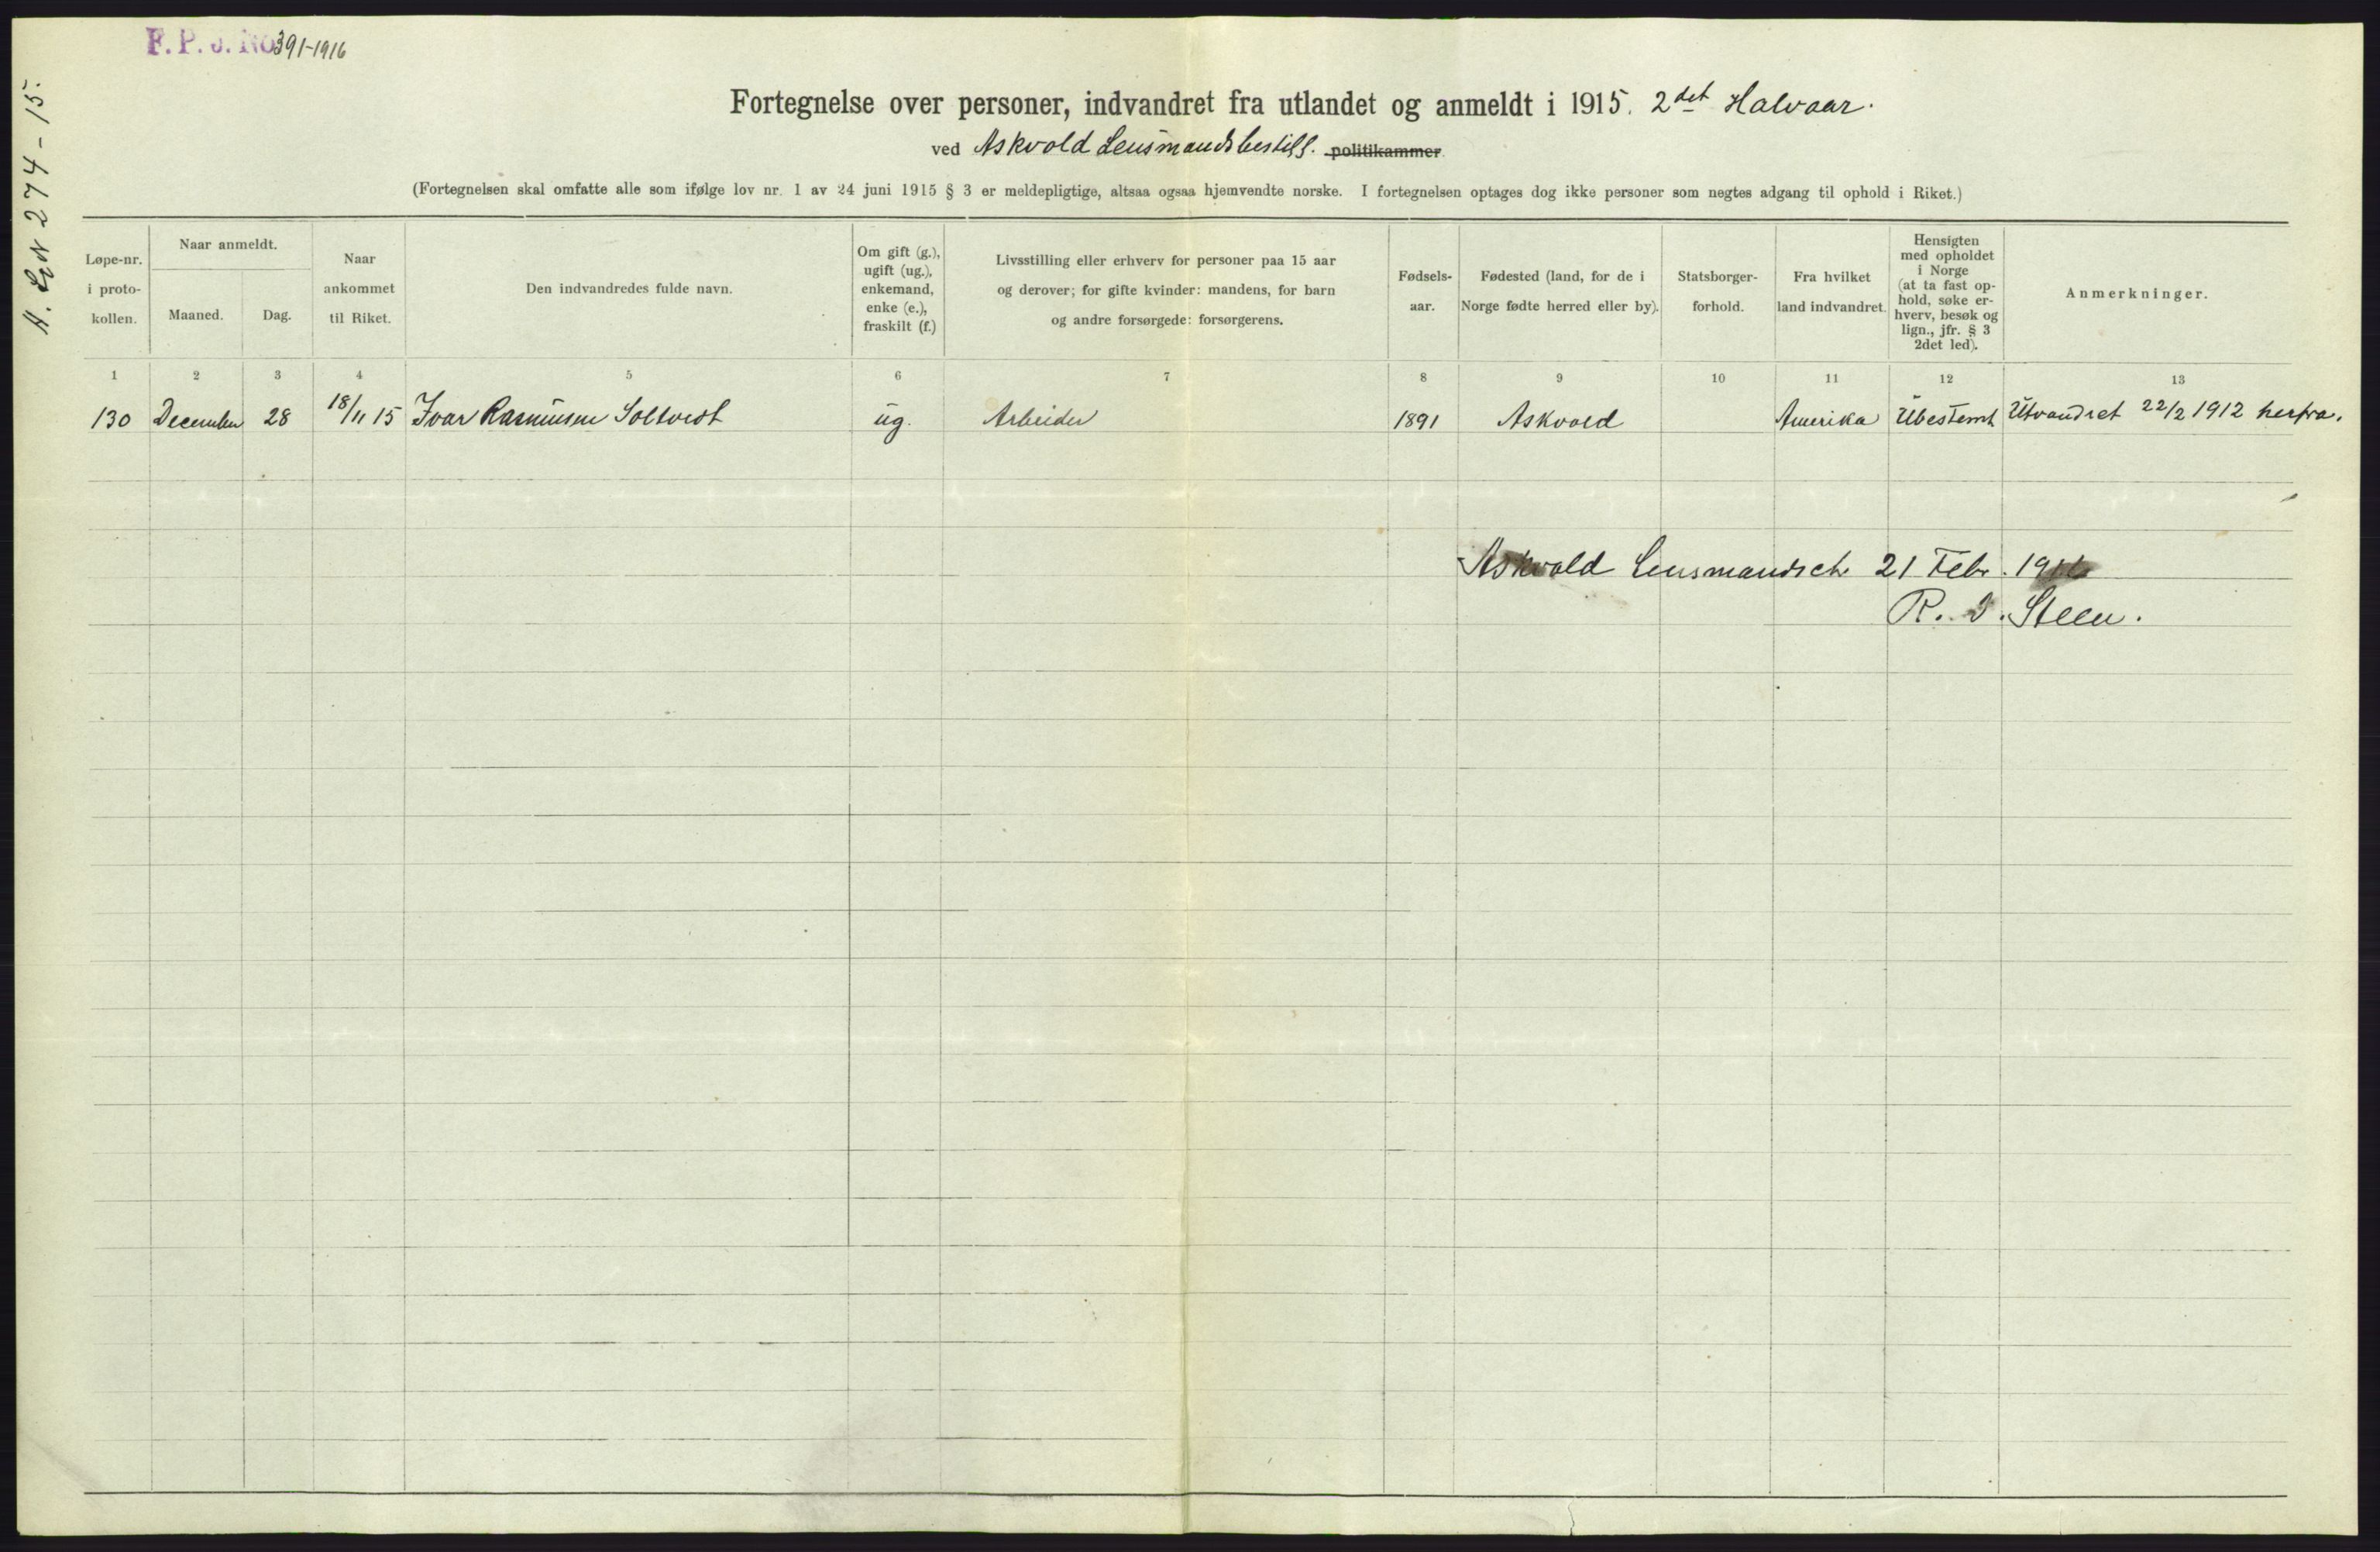 F. P. J. No 391-1916
H. 274-15.
Fortegnelse over personer, indvandret fra utlandet og anmeldt i 1915. 2det Halvaar.
ved Askvold Lensmandsbestill. politikammer.
(Fortegnelsen skal omfatte alle som ifølge lov nr. 1 av 24 juni 1915 § 3 er meldepligtige, altsaa ogsaa hjemvendte norske. I fortegnelsen optages dog ikke personer som negtes adgang til ophold i Riket.)
Løpe-nr.
i proto-
kollen.
Naar anmeldt.
Maaned.
Dag.
Naar
ankommet
til Riket.
Den indvandredes fulde navn.
Om gift (g.),
ugift (ug.),
enkemand,
enke (e.),
fraskilt (f.)
Livsstilling eller erhverv for personer paa 15 aar
og derover; for gifte kvinder: mandens, for barn
og andre forsørgede: forsørgerens.
Fødsels-
aar.
Fødested (land, for de i
Norge fødte herred eller by).
Statsborger-
forhold.
Fra hvilket
land indvandret.
Hensigten
med opholdet
i Norge
(at ta fast op-
hold, søke er-
hverv, besøk og
lign., jfr. § 3
2det led).
Anmerkninger.
1 2 3 4 5 6 7 8 9 10 11 12 13
130 December 28 18/11 15 Ivar Rasmussen ug. Arbeider 1891 Askvold Amerika Ubestemt Utvandret 22/2 1912 herfra.
Askvold 21 Febr. 1916
R. Steen.